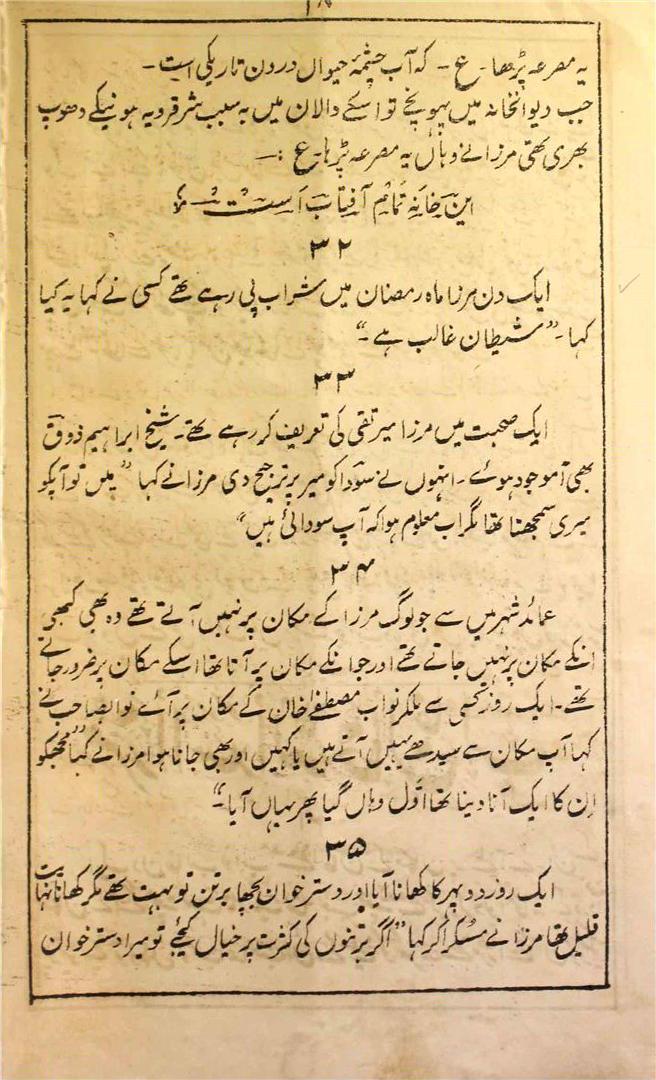 ۱۸
یہ مصرعہ پڑھا۔ ع۔ کہ آب چشمۂ حیواں درون تاریکی است۔
جب دیوانخانہ میں پہونچے تو اسکے والان میں بہ سبب شرقرویہ ہونیکے دھوپ
بھری تھی مرزا نے وہاں یہ مصرعہ پڑہا۔ ع :۔
این خانہ تمام آفتاب است
۳۲
ایک دن مرزا ماہ رمضان میں شراب پی رہے تھے کسی نے کہا یہ کیا
کہا۔ "شیطان غالب ہے۔"
۳۳
ایک صحبت میں مرزا میر تقی کی تعریف کر رہے تھے۔ شیخ ابراہیم ذوق
بھی آموجود ہوئے۔ انہوں نے سودا کو میر پر ترجیح دی مرزا نے کہا "میں تو آپکو
میری سمجھتا تھا مگر اب معلوم ہوا کہ آپ سودائی ہیں"
۳۴
عمائد شہر میں سے جو لوگ مرزا کے مکان پر نہیں آتے تھے وہ بھی کبھی
انکے مکان پر نہیں جاتے تھے اور جو انکے مکان پر آتا تھا اسکے مکان پر ضرور جاتے
تھے۔ ایک روز کسی سے ملکر نواب مصطفےٰ خان کے مکان پر آئے نوابصاحب نے
کہا آپ مکان سے سیدھے یہیں آتے ہیں یا کہیں اور بھی جانا ہوا مرزا نے کہا "مجھکو
اِن کا ایک آنا دینا تھا اوّل وہاں گیا پھر یہاں آیا۔"
۳۵
ایک روز دوپہر کا کھانا آیا اور دسترخوان بچھا برتن تو بہت تھے مگر کھانا نہایت
قلیل تھا مرزا نے مسکرا کر کہا "اگر برتنوں کی کثرت پر خیال کیجئے تو میرا دسترخوان